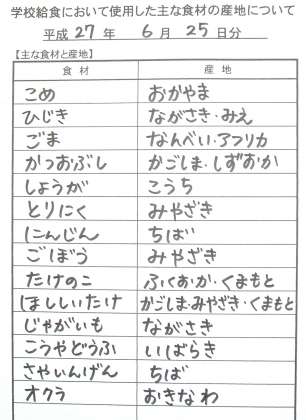 学校給食において使用した主な食材の産地について
平成 27 年 6 月 25 日分
【主な食材と産地】
食材 産地
こめ おかやま
ひじき ながさき・みえ
ごま なんべい・アフリカ
かつおぶし かごしま・しずおか
しょうが こうち
とりにく みやざき
にんじん ちば
ごぼう みやざき
たけのこ ふくおか・くまもと
ほししいたけ かごしま・みやざき・くまもと
じゃがいも ながさき
こうやどうふ いばらき
さやいんげん ちば
オクラ おきなわ